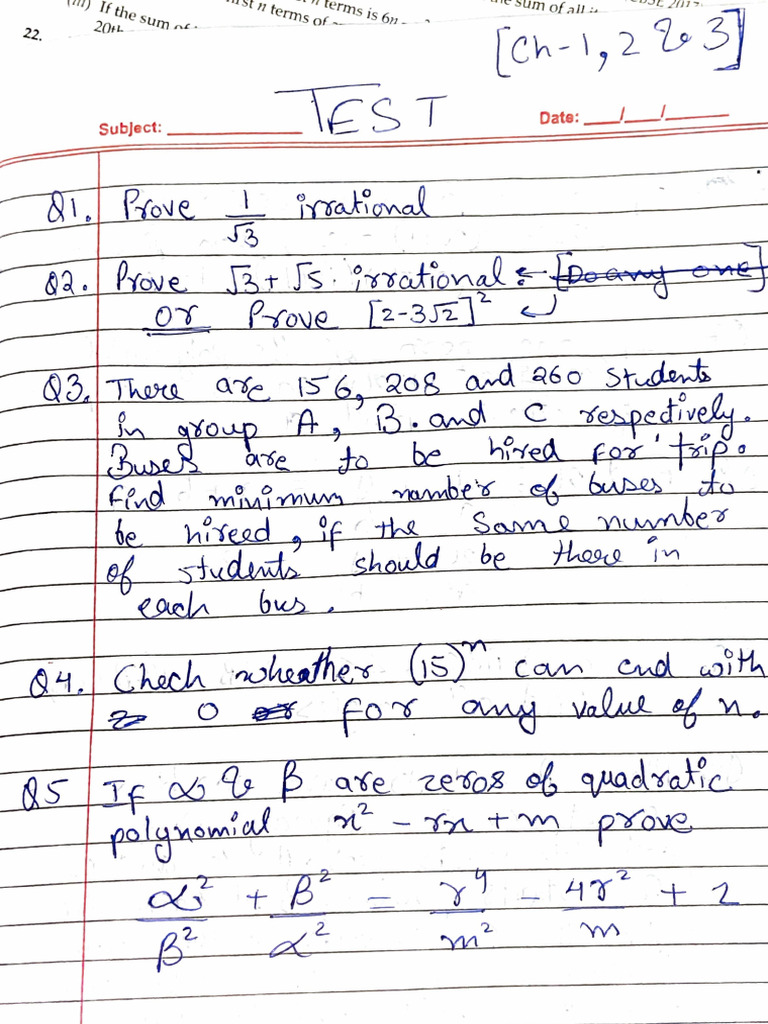 (iii) If the sum of
terms is 6n
n terms of
sum of all
22.
20th
[Ch-1, 2 & 3]
TEST
Subject: Date: / /
Q1. Prove 1/√3 irrational
Q2. Prove √3 + √5 irrational. [Do any one]
or Prove [2-3√2]²
Q3. There are 156, 208 and 260 students
in group A, B. and C respectively.
Buses are to be hired for trip.
Find minimum number of buses to
be hireed, if the same number
of students should be there in
each bus.
Q4. Chech wheather (15)ⁿ can end with
0 or for any value of n.
Q5 If α & β are zeros of quadratic
polynomial x² - rx + m prove
α²/β² + β²/α² = r⁴/m² - 4r²/m + 2